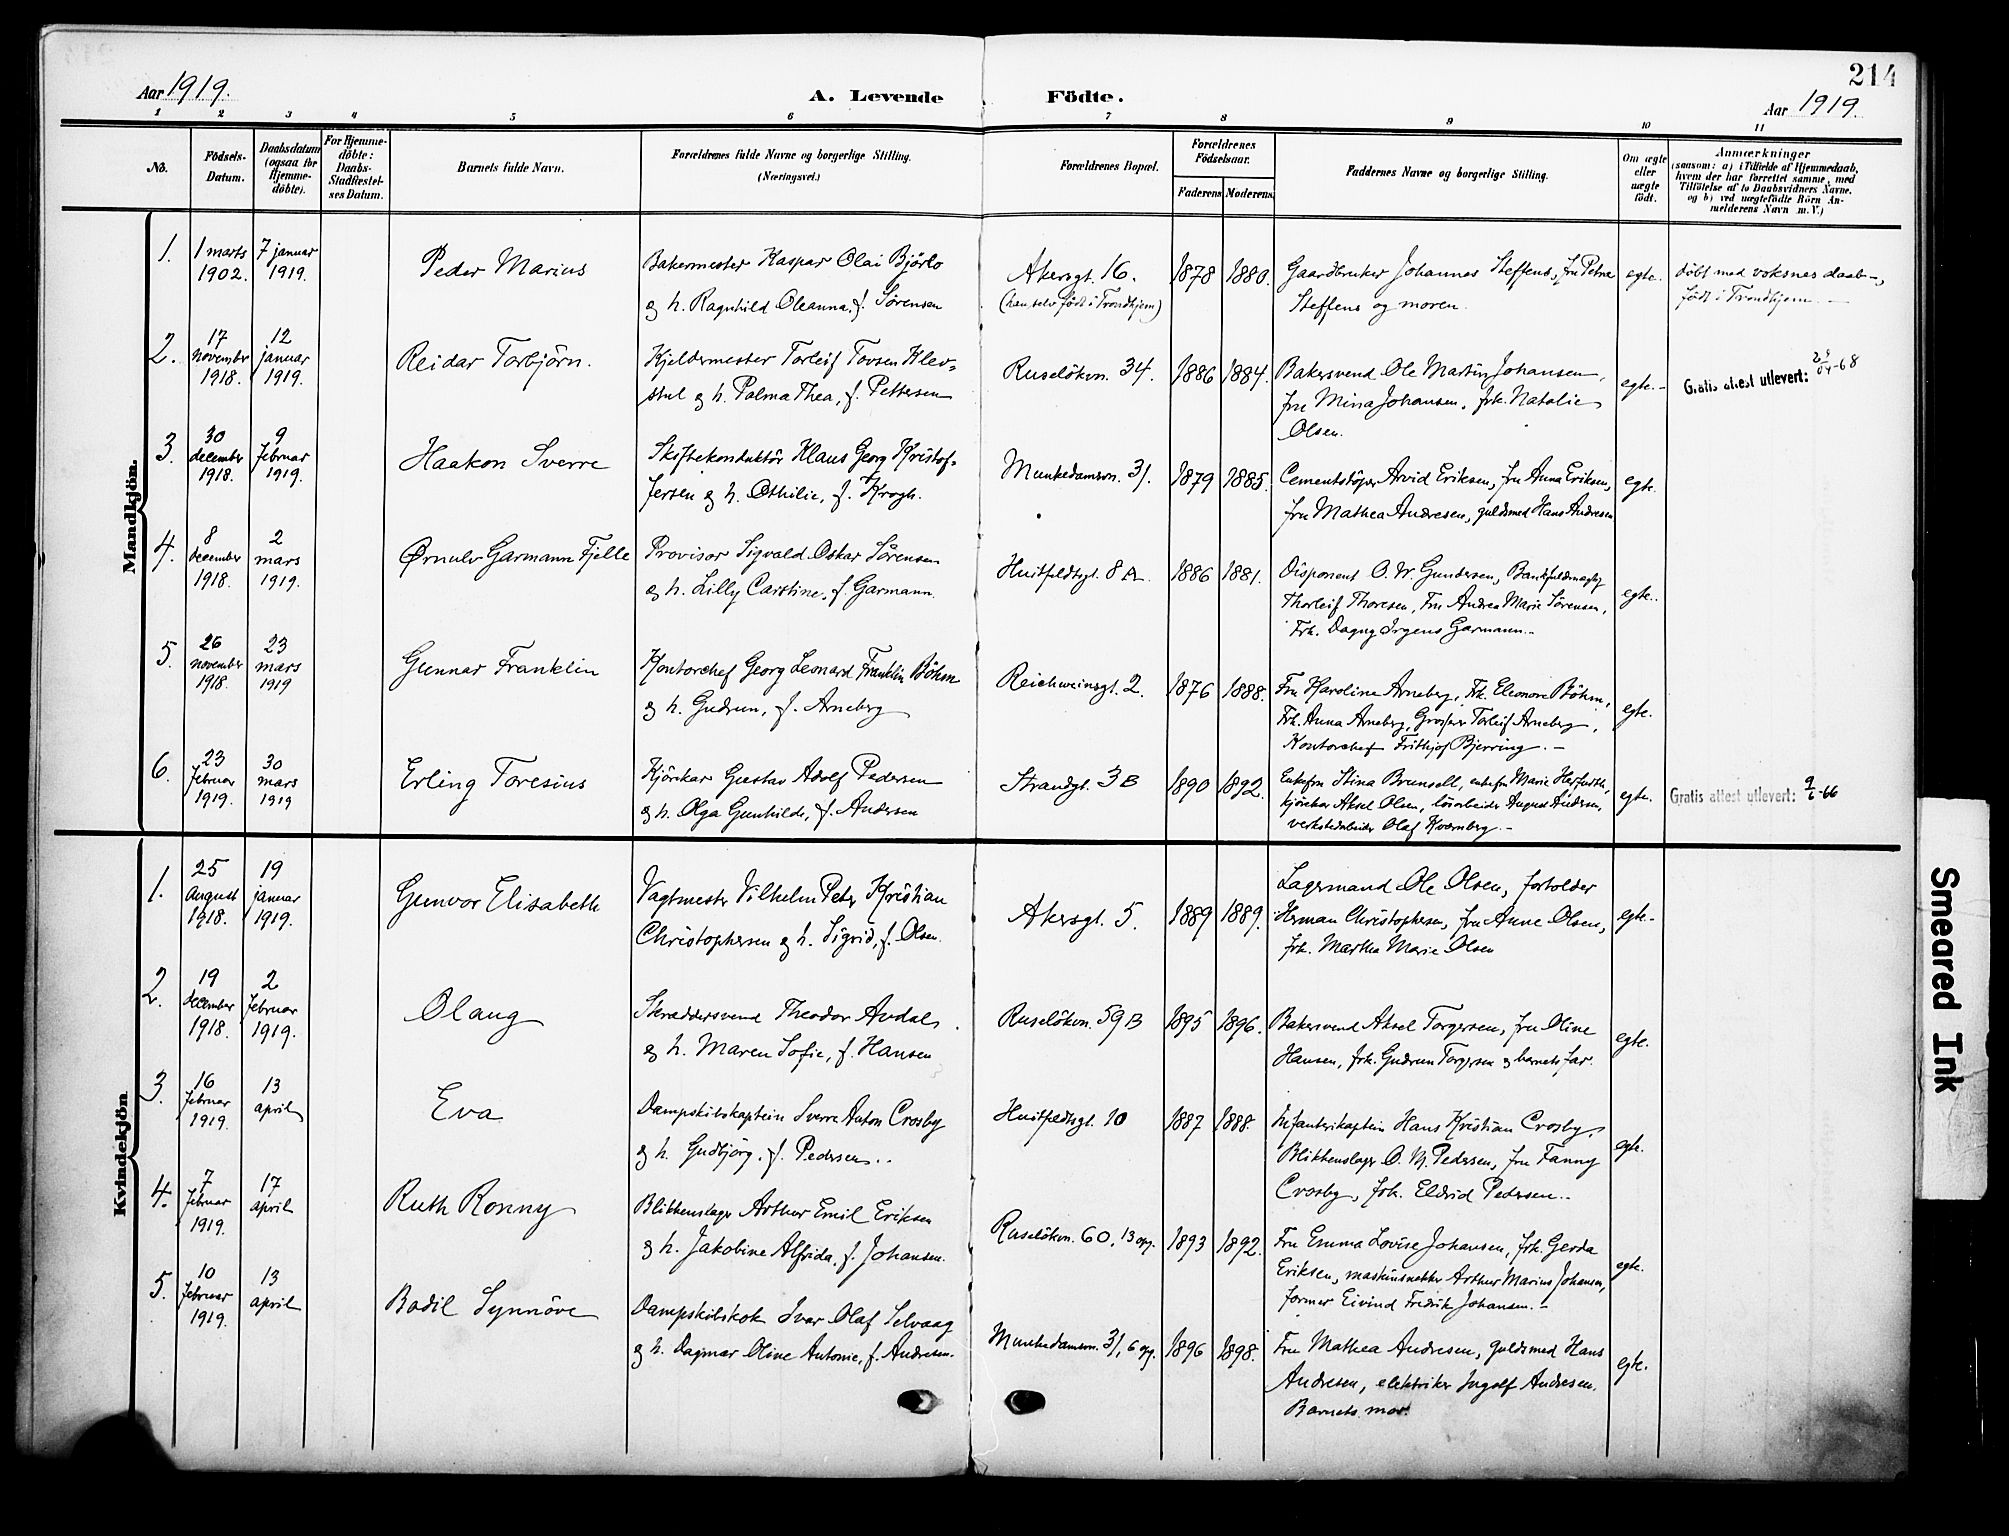 214
Aar 1919.
A. Levende Födte.
Aar 1919.
1 2 3 4 5 6 7 8 9 10 11
No.
Födsels-
Datum.
Daabsdatum
(ogsaa for
Hjemme-
döbte).
For Hjemme-
döbte:
Daabs-
Stadfæstel-
ses Datum.
Barnets fulde Navn.
Forældrenes fulde Navne og borgerlige Stilling.
(Næringsvei.)
Forældrenes Bopæl.
Forældrenes
Födselsaar.
Faderens Moderens
Faddernes Navne og borgerlige Stilling.
Om ægte
eller
uægte
födt.
Anmærkninger
(saasom: a) i Tilfælde af Hjemmedaab,
hvem der har forrettet samme, med
Tilföielse af to Daabsvidners Navne,
og b) ved uægtefödte Börn An-
melderens Navn m. V.)
Mandkjön.
1.
1 marts
1902.
7 januar
1919.
Peder Marius
Bakermester Kaspar Olai Björlo
og h. Ragnhild Oleanna, f. Sörensen
Akersgt. 16.
(han selv födt i Trondhjem)
1878 1880.
Gaardbruker Johannes Steffens, fru Petra
Steffens og moren.
egte.
döbt med voksnes daab-,
födt i Trondhjem.
2.
17
november
1918.
12
januar
1919.
Reidar Torbjörn.
Kjeldermester Torleif Tovsen Klev-
stul og h. Palma Thea, f. Pettersen
Ruselökvn. 34.
1886 1884.
Bakersvend Ole Martin Johansen,
fru Mina Johansen, frk. Natalie
Olsen.
egte.-
Gratis attest utlevert: 29/04-68
3.
30
december
1918.
9
februar
1919.
Haakon Sverre
Skiftekonduktör Klaus Georg Kristof-
fersen og h. Othilie, f. Krogh.
Munkedamsvn. 31.
1879 1885.
Cementstöper Arvid Eriksen, fru Anna Eriksen,
fru Mathea Andresen, guldsmed Hans Andresen
egte.
4.
8
december
1918.
2
mars
1919.
Ørnulv Garmann Fjelle
Provisor Sigvald Oskar Sörensen
og h. Lilly Carstine, f. Garmann.
Huitfeldtsgt. 8 A.
1886 1881.
Disponent O. W. Gundersen, Bankfuldmægtig
Thorleif Thoresen, Fru Andrea Marie Sörensen,
Frk. Dagny Irgens Garmann.-
egte.
5.
26
november
1918.
23
mars
1919
Gunnar Franklin
Kontorchef Georg Leonard Franklin Böhm
og h. Gudrun, f. Arneberg
Reichweinsgt. 2.
1876 1888.
Fru Karoline Arneberg, Frk. Eleonore Böhm,
Frk. Anna Arneberg, Grosserer Torleif Arneberg,
Kontorchef Frithjof Bjerring.-
egte.
6.
23
februar
1919.
30
mars
1919
Erling Toresius
Kjörekar Gustav Adolf Pedersen
og h. Olga Gunhilde, f. Andersen
Strandgt. 3 B
1890 1892.
Enkefru Stina Brunsell, enkefru Marie
kjörekar Aksel Olsen, lösarbeider August Andersen,
verkstedarbeider Olaf Kværnberg.-
egte.
Gratis attest utlevert: 9/6-66
Kvindekjön
1.
25
august
1918.
19
januar
1919.
Gunvor Elisabeth
Vagtmester Vilhelm Peter Kristian
Christophersen og h. Sigrid, f. Olsen.
Akersgt. 5.
1889 1889.
Lagermand Ole Olsen, forvalter
Herman Christophersen, fru Anne Olsen,
frk. Martha Marie Olsen
egte.-
2.
19
december
1918.
2
februar
1919.
Olaug
Skræddersvend Theodor Avdal
og h. Maren Sofie, f. Hansen
Ruselökvn. 59 B
1895 1896.
Bakersvend Aksel Torgersen, fru Oline
Hansen, frk. Gudrun Torgersen og barnets far.
egte.
3.
16
februar
1919.
13
april
Eva
Dampskibskaptein Sverre Anton Crosby
og h. Gudbjörg, f. Pedersen..
Huitfeldtsgt. 10
1887 1888.
Infanterikaptein Hans Kristian Crosby,
Blikkenslager O. M. Pedersen, fru Fanny
Crosby, frk. Eldrid Pedersen..
egte.
4.
7
februar
1919.
17
april
Ruth Ronny
Blikkenslager Arthur Emil Eriksen
og h. Jakobine Alfrida, f. Johansen.
Ruselökvn. 60, 13 opg.
1893 1892.
Fru Emma Lovise Johansen, frk. Gerda
Eriksen, maskinsætter Arthur Marius Johansen,
former Eivind Fredrik Johansen.-
egte.
5.
10
februar
1919.
13
april
Bodil Synnöve
Dampskibskok Ivar Olaf Selvaag
og h. Dagmar Oline Antonie, f. Andresen.
Munkedamsvn. 31, 6 opg.
1896 1898.
Fru Mathea Andresen, guldsmed Hans
Andresen, elektriker Ingolf Andresen.
Barnets mor.
egte.
Smeared Ink